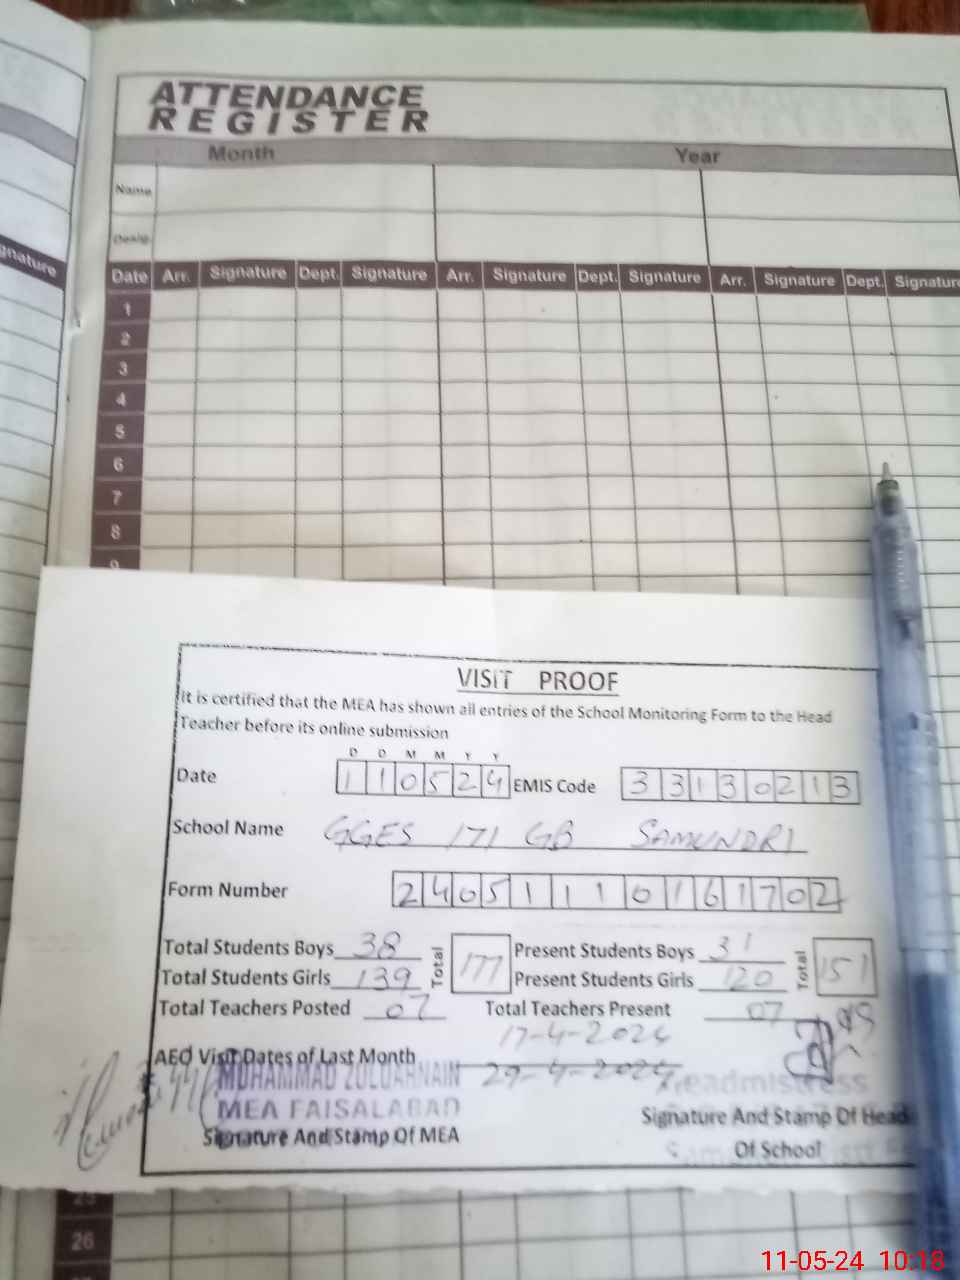 ATTENDANCE
REGISTER
Month Year
Name
Desig.
gnature
Date Arr. Signature Dept. Signature Arr. Signature Dept. Signature Arr. Signature Dept. Signature
1
2
3
4
5
6
7
8
9
VISIT PROOF
It is certified that the MEA has shown all entries of the School Monitoring Form to the Head
Teacher before its online submission
D D M M Y Y
Date 110524 EMIS Code 33130213
School Name GGES 171 GB SAMUNDRI
Form Number 24051110161702
Total Students Boys 38 Total 177 Present Students Boys 31 Total 151
Total Students Girls 139 Present Students Girls 120
Total Teachers Posted 07 Total Teachers Present 07
17-4-2024
AEO Visit Dates of Last Month 29-4-2024
MUHAMMAD ZULQARNAIN Headmistress
MEA FAISALABAD
Signature And Stamp Of MEA Signature And Stamp Of Head
Of School
25
26
11-05-24 10:18